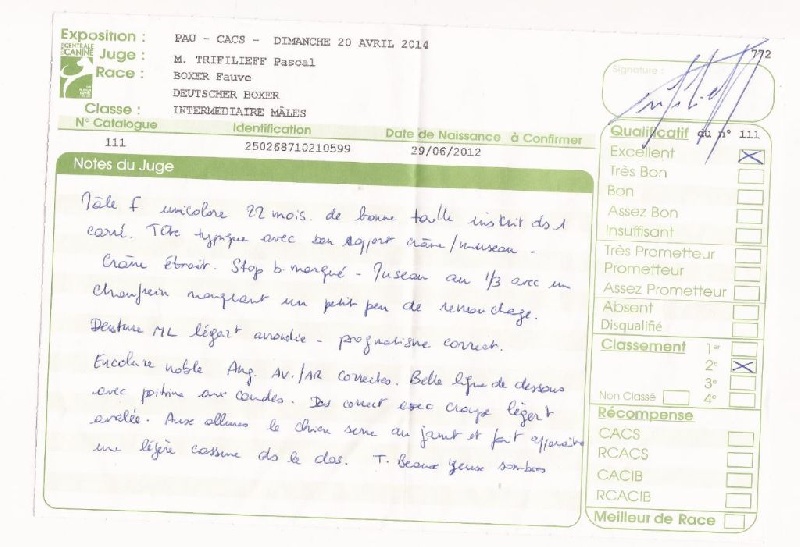 772
Exposition : PAU - CACS - DIMANCHE 20 AVRIL 2014
CENTRALE CANINE
Juge : M. TRIFILIEFF Pascal
Race : BOXER Fauve
DEUTSCHER BOXER
Classe : INTERMEDIAIRE MÂLES
N° Catalogue Identification Date de Naissance à Confirmer
111 250268710210599 29/06/2012
Notes du Juge
Mâle f unicolore 22 mois. de bonne taille inscrit ds 1
carré. Tête typique avec bon rapport crâne/museau -
Crâne étroit. Stop b marqué - Museau au 1/3 avec un
chanfrein manquant un petit peu de remouchage.
Denture ML légert arrondie - prognatisme correct.
Encolure noble Ang. Av./AR correctes. Belle ligne de dessous
avec poitrine aux coudes. Dos correct avec croupe légert
avalée. Aux allures le chien serre au jarret et fait apparaitre
une légère cassure ds le dos. T. Beaux yeux sombres
Signature :
Qualificatif du n° 111
Excellent
Très Bon
Bon
Assez Bon
Insuffisant
Très Prometteur
Prometteur
Assez Prometteur
Absent
Disqualifié
Classement 1er
2e
3e
Non Classé 4e
Récompense
CACS
RCACS
CACIB
RCACIB
Meilleur de Race